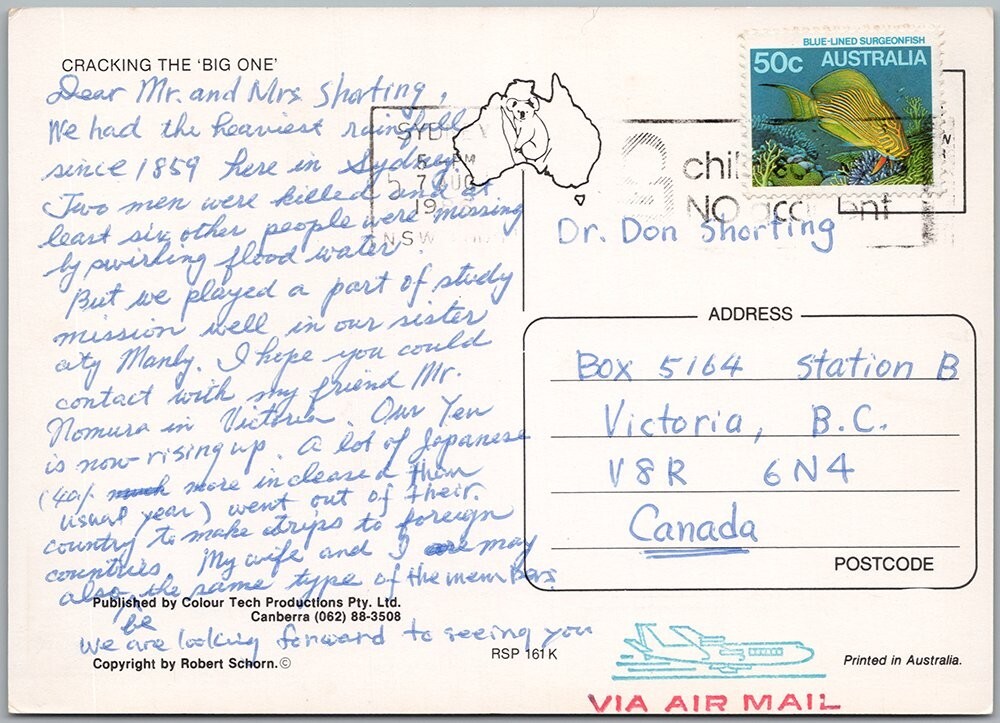 CRACKING THE 'BIG ONE'
Dear Mr. and Mrs Shorting,
We had the heaviest rainfall
since 1859 here in Sydney.
Two men were killed and at
least six other people were missing
by swirling flood water.
But we played a part of study
mission well in our sister
city Manly. I hope you could
contact with my friend Mr.
Nomura in Victoria. Our Yen
is now rising up. A lot of Japanese
more inclease d than
usual year) went out of their
country to make a trips to foreign
countries. My wife and I may
also be the same type of the members.
we are looking forward to seeing you
Published by Colour Tech Productions Pty. Ltd.
Canberra (062) 88-3508
Copyright by Robert Schorn.©
RSP 161K
BLUE-LINED SURGEONFISH
50c AUSTRALIA
PM
7 AUG
19
NSW
NO
Dr. Don Shorting
ADDRESS
Box 5164 Station B
Victoria, B.C.
V8R 6N4
Canada
POSTCODE
VIA AIR MAIL
Printed in Australia.